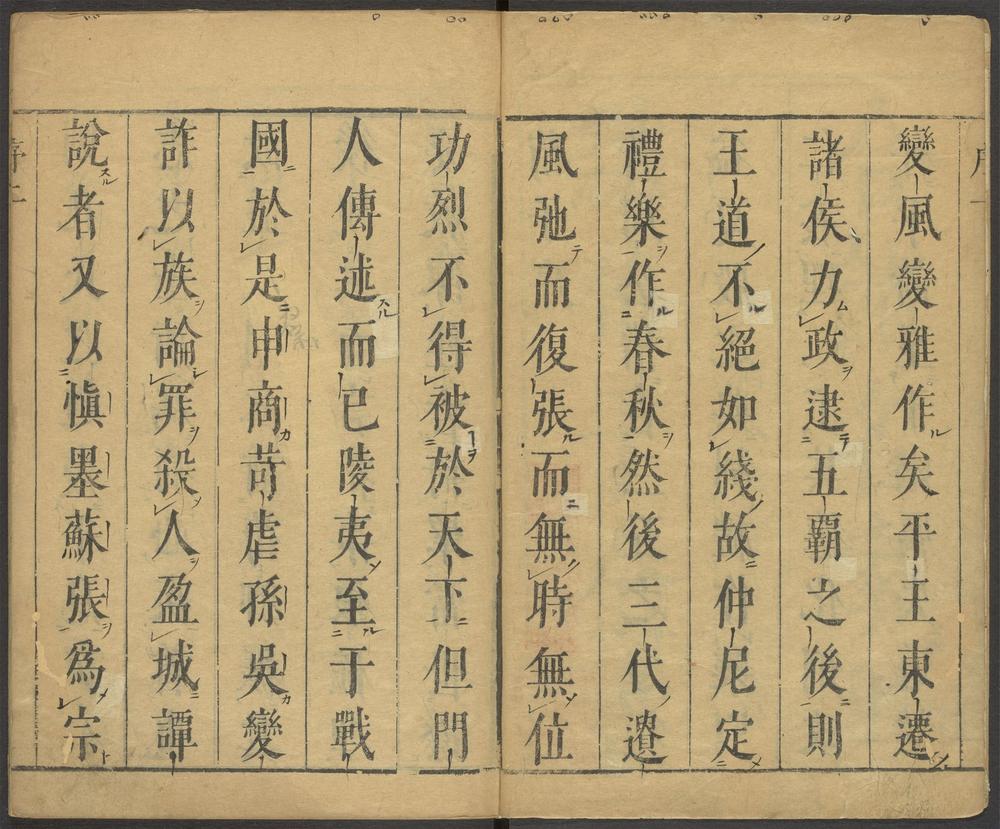 變風變雅作矣平王東遷
諸侯力政逮五覇之後則
王道不絕如綫故仲尼定
禮樂作春秋然後三代遺
風弛而復張而無時無位
功烈不得被於天下但門
人傳述而已陵夷至于戰
國於是申商苛虐孫吳變
詐以族論罪殺人盈城譚
說者又以愼墨蘇張爲宗